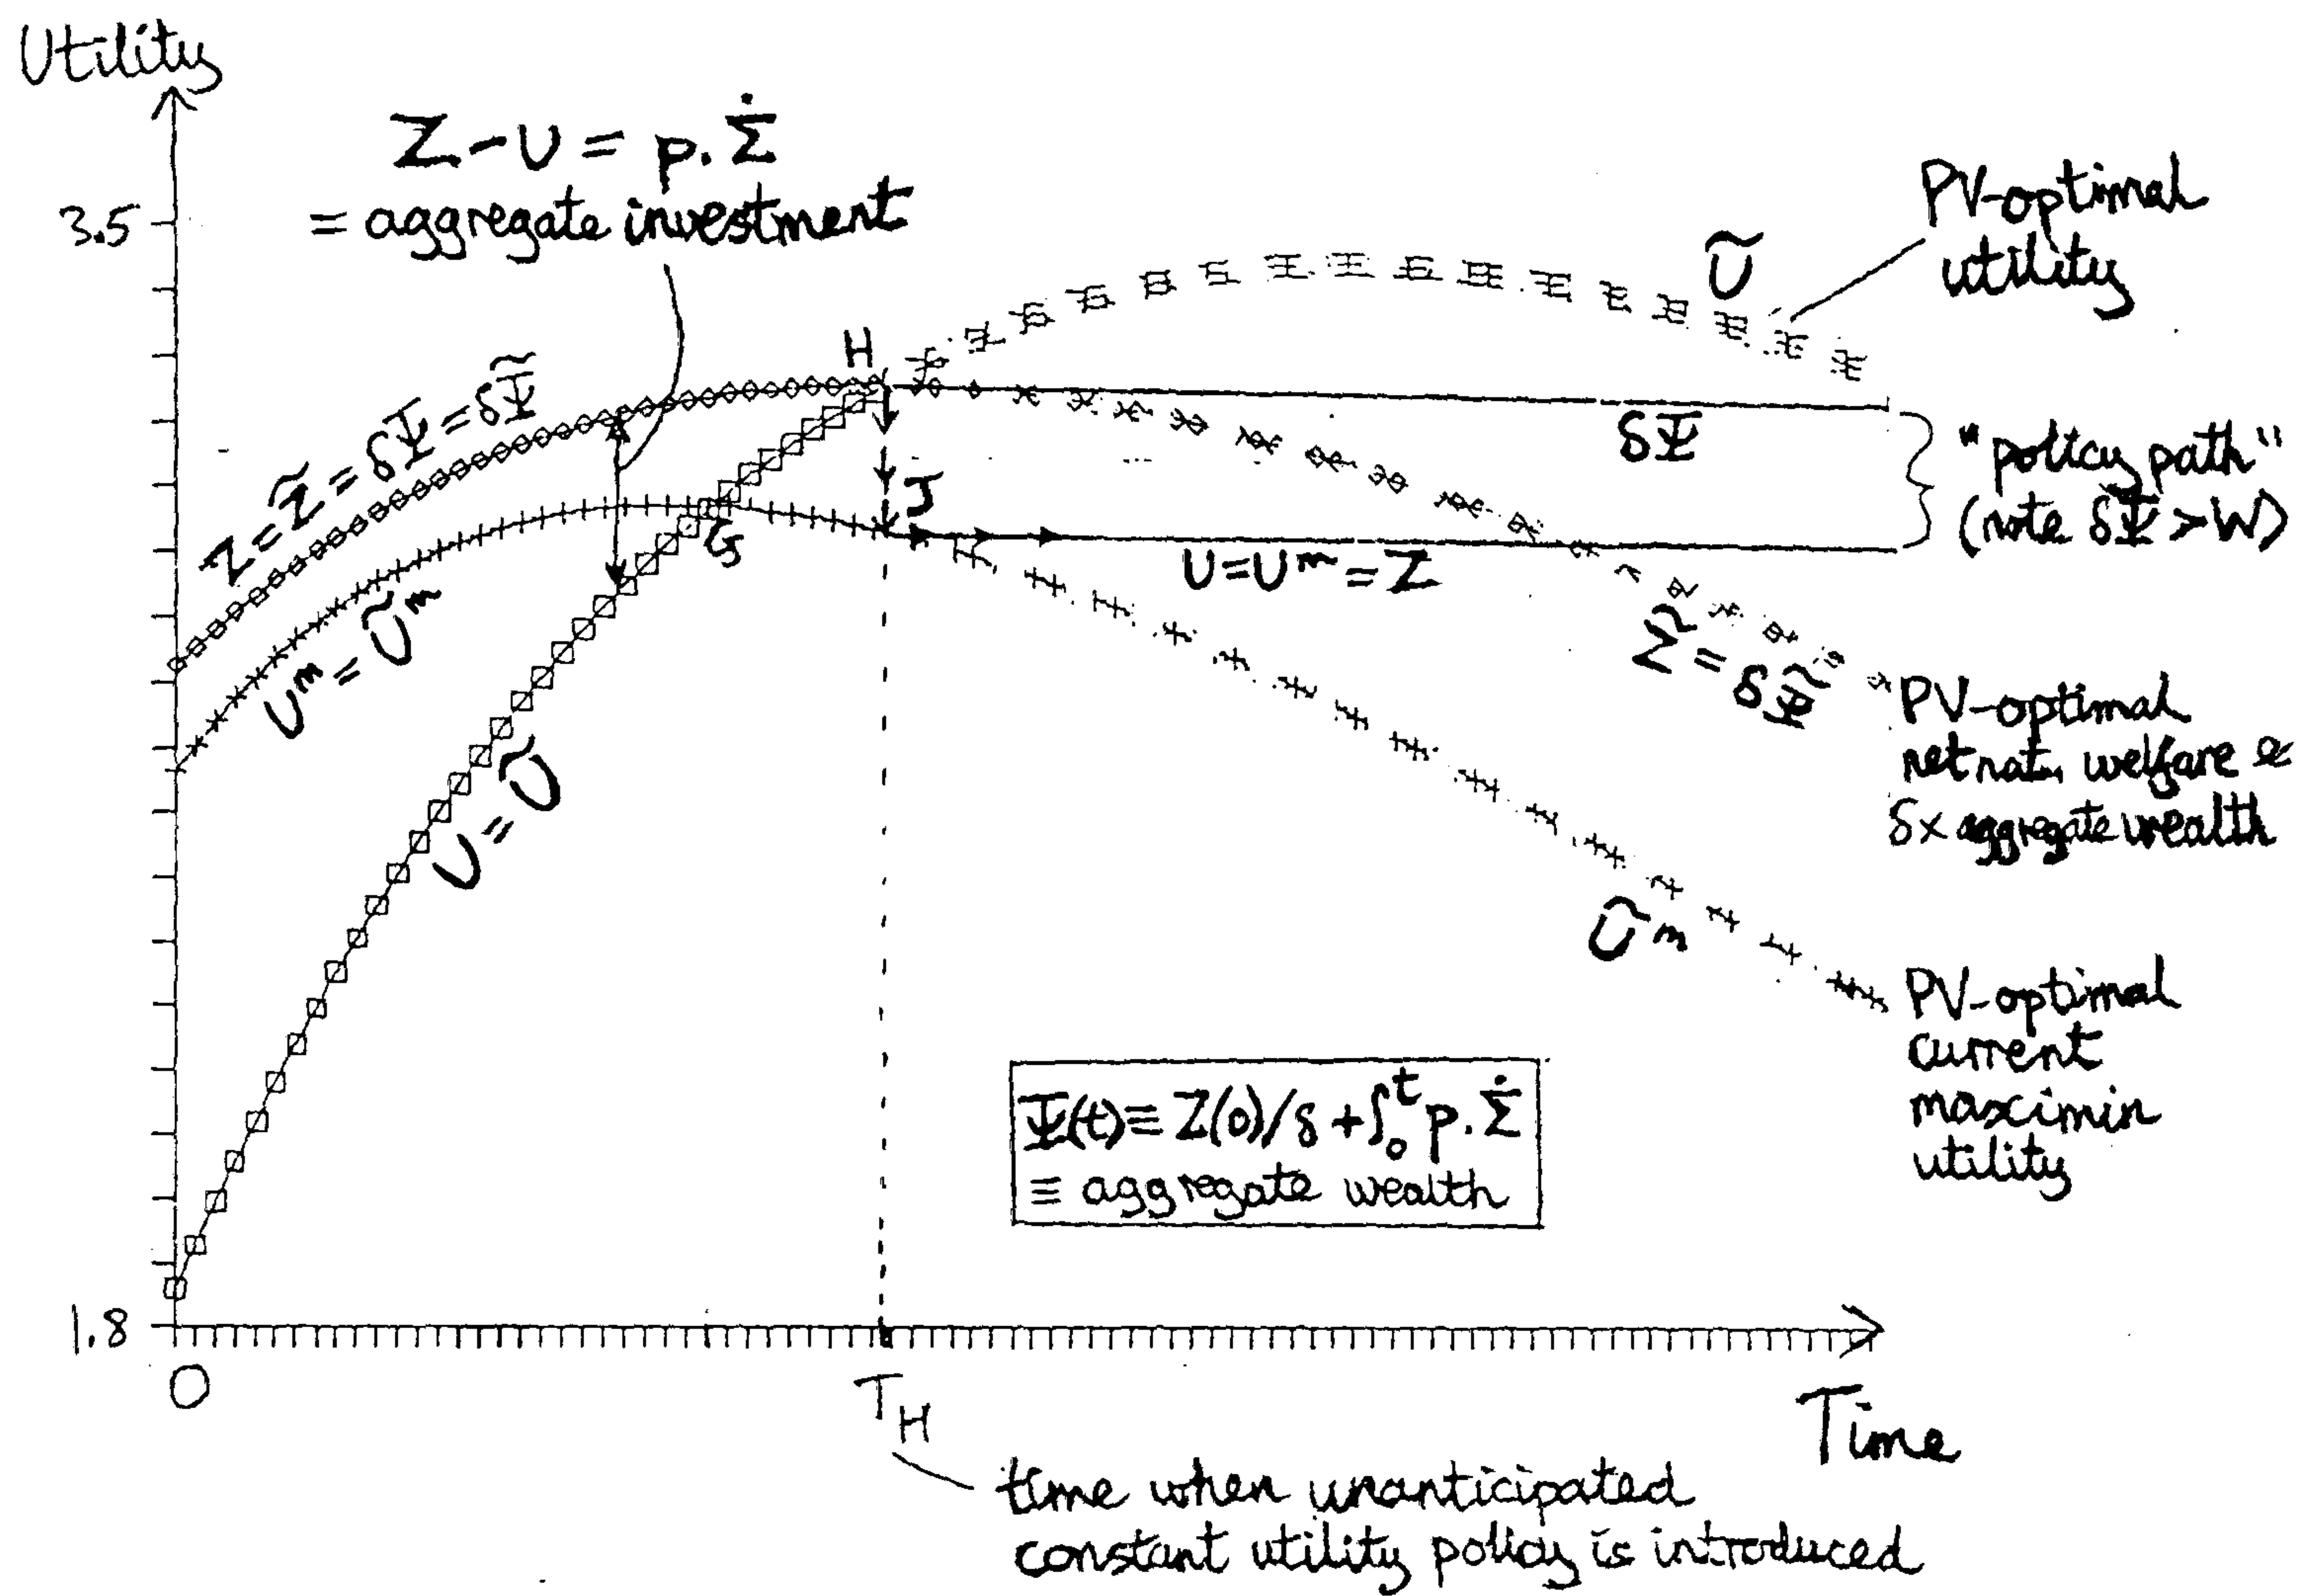 Utility
Z - U = p.Σ̇
= aggregate investment
3.5
PV-optimal
utility
Ũ
H
Z = Z̃ = δΨ = δΨ̃
δΨ
"policy path"
(note δΨ > W)
J
G
U = Uᵐ = Z
Uᵐ = Ũᵐ
Z̃ = δΨ̃
PV-optimal
net nat. welfare &
δ x aggregate wealth
U = Ũ
Ũᵐ
PV-optimal
current
maximin
utility
Ψ(t) ≡ Z(0)/δ + ∫₀ᵗ p.Σ̇
≡ aggregate wealth
1.8
0
T_H
Time
time when unanticipated
constant utility policy is introduced